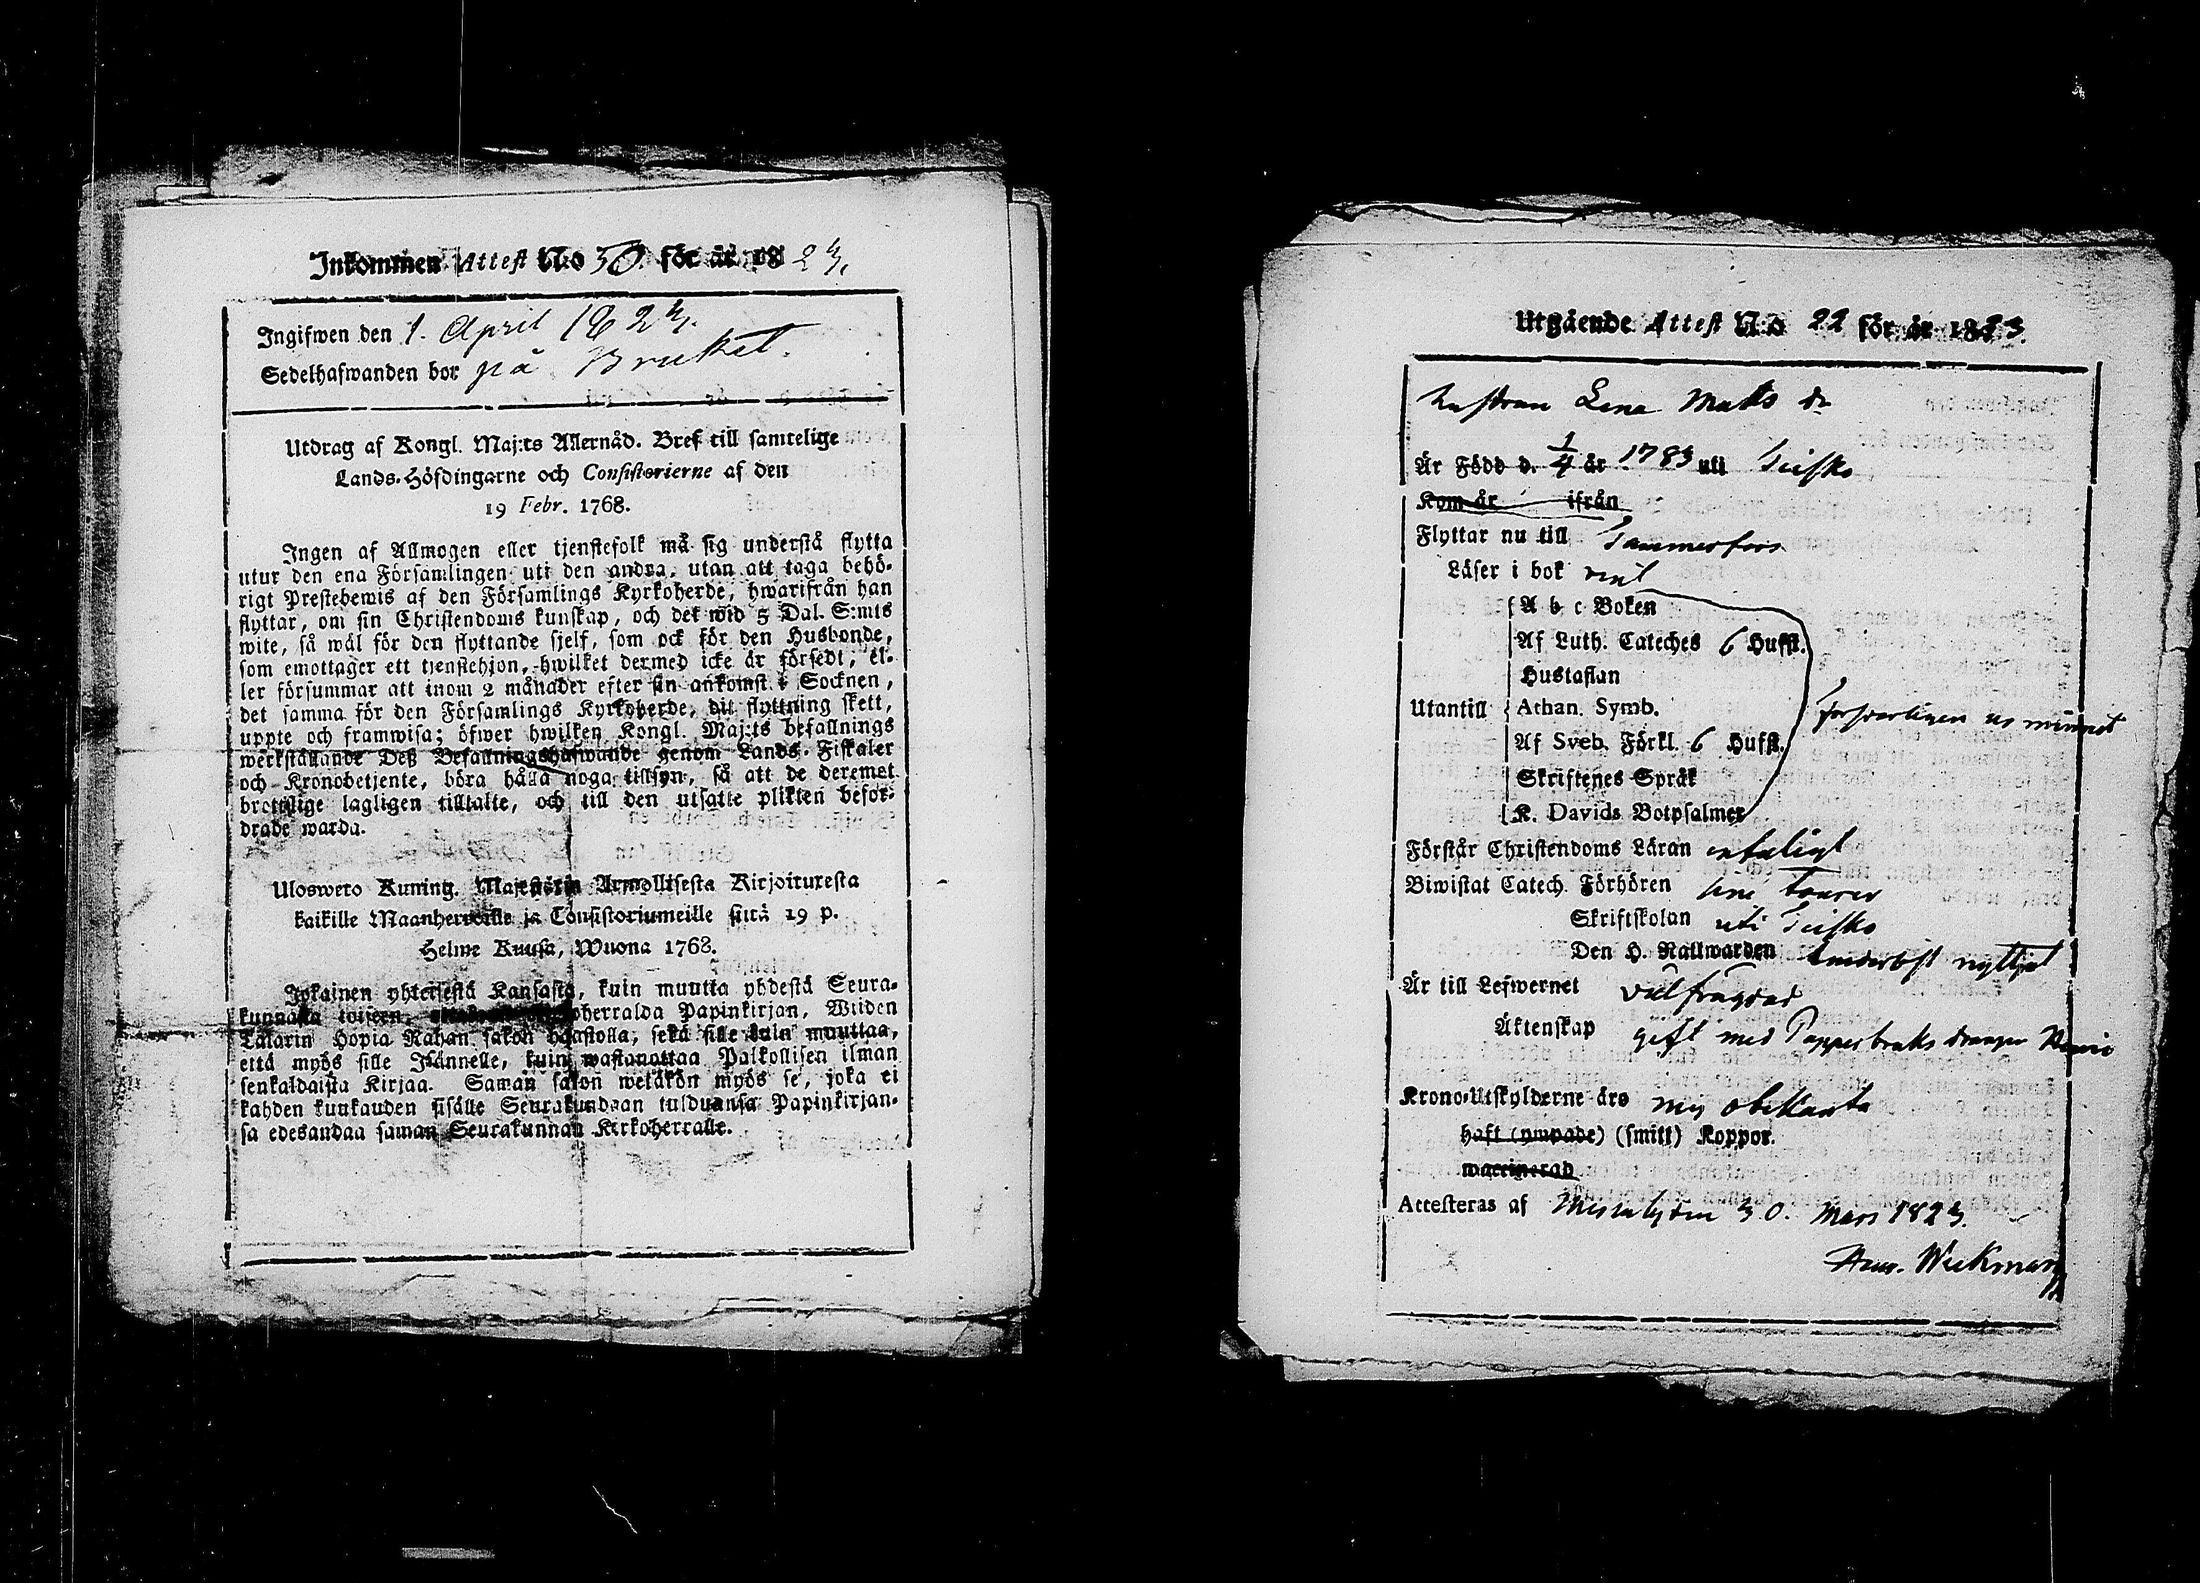 Inkommen Attest N:o 50. för år 1823.
Ingifwen den 1. April 1823.
Sedelhafwanden bor på Bruket.
Utdrag af Kongl. Maj:ts Allernåd. Bref till samtelige
Lands-Höfdingarne och Consistorierne af den
19 Febr. 1768.
Ingen af Allmogen eller tjenstefolk må sig understå flytta
utur den ena Församlingen uti den andra, utan att taga behö-
rigt Prestebewis af den Församlings Kyrkoherde, hwarifrån han
flyttar, om sin Christendoms kunskap, och det wid 5 Dal. S:mts
wite, så wäl för den flyttande sjelf, som ock för den Husbonde,
som emottager ett tjenstehjon, hwilket dermed icke är försedt, el-
ler försummar att inom 2 månader efter sin ankomst i Socknen,
det samma för den Församlings Kyrkoherde, dit flyttning skett,
uppte och framwisa; öfwer hwilken Kongl. Maj:ts befallnings
werkställande Deß Befallningshafwande genom Lands-Fiskaler
och Kronobetjente, böra hålla noga tillsyn, så att de deremot
brottslige lagligen tilltalte, och till den utsatte plikten beför-
drade warda.
Uloswero Kuning. Majestätin Armollisesta Kirjoituxesta
kaikille Maanherroille ja Consistoriumeille siitä 19 p.
Helme Kuusa, Wuona 1768.
Jokainen yhteisestä Kansasta, kuin muutta yhdestä Seura-
kunnasta toiseen, Papinkirjan, Wiiden
Talarin Hopia Rahan sakon haastolla, sekä sille kuin muuttaa,
että myös sille Isännelle, kuin wastanottaa Palkollisen ilman
senkaldaista Kirjaa. Saman sakon wetäkön myös se, joka ei
kahden kuukauden sisälle Seurakundaan tulduansa Papinkirjan-
sa edesandaa saman Seurakunnan Kirkoherralle.
Utgående Attest N:o 22 för år 1823.
hustrun Lena Matts dr
Är Född d. 1/4 år 1783 uti Teisko
Kom år ifrån
Flyttar nu till Tammerfors
Läser i bok väl
A b c Boken
Af Luth. Cateches 6 Hufst.
Hustaflan
Utantill Athan. Symb. forswarligen ur minnet
Af Sveb. Förkl. 6 Hufst.
Skriftenes Språk
K. Davids Botpsalmer
Förstår Christendoms Läran
Biwistat Catech. Förhören
Skriftskolan uti Teisko
Den H. Nattwarden nyttjat
Är till Lefwernet välfrägdad
Äktenskap gift med Pappersbruks drängen
Krono-Utskylderne äro mig obekanta
haft (ympade) (smitt) Koppor.
waccinerad
Attesteras af Messuby den 30. Mars 1823.
Wickman